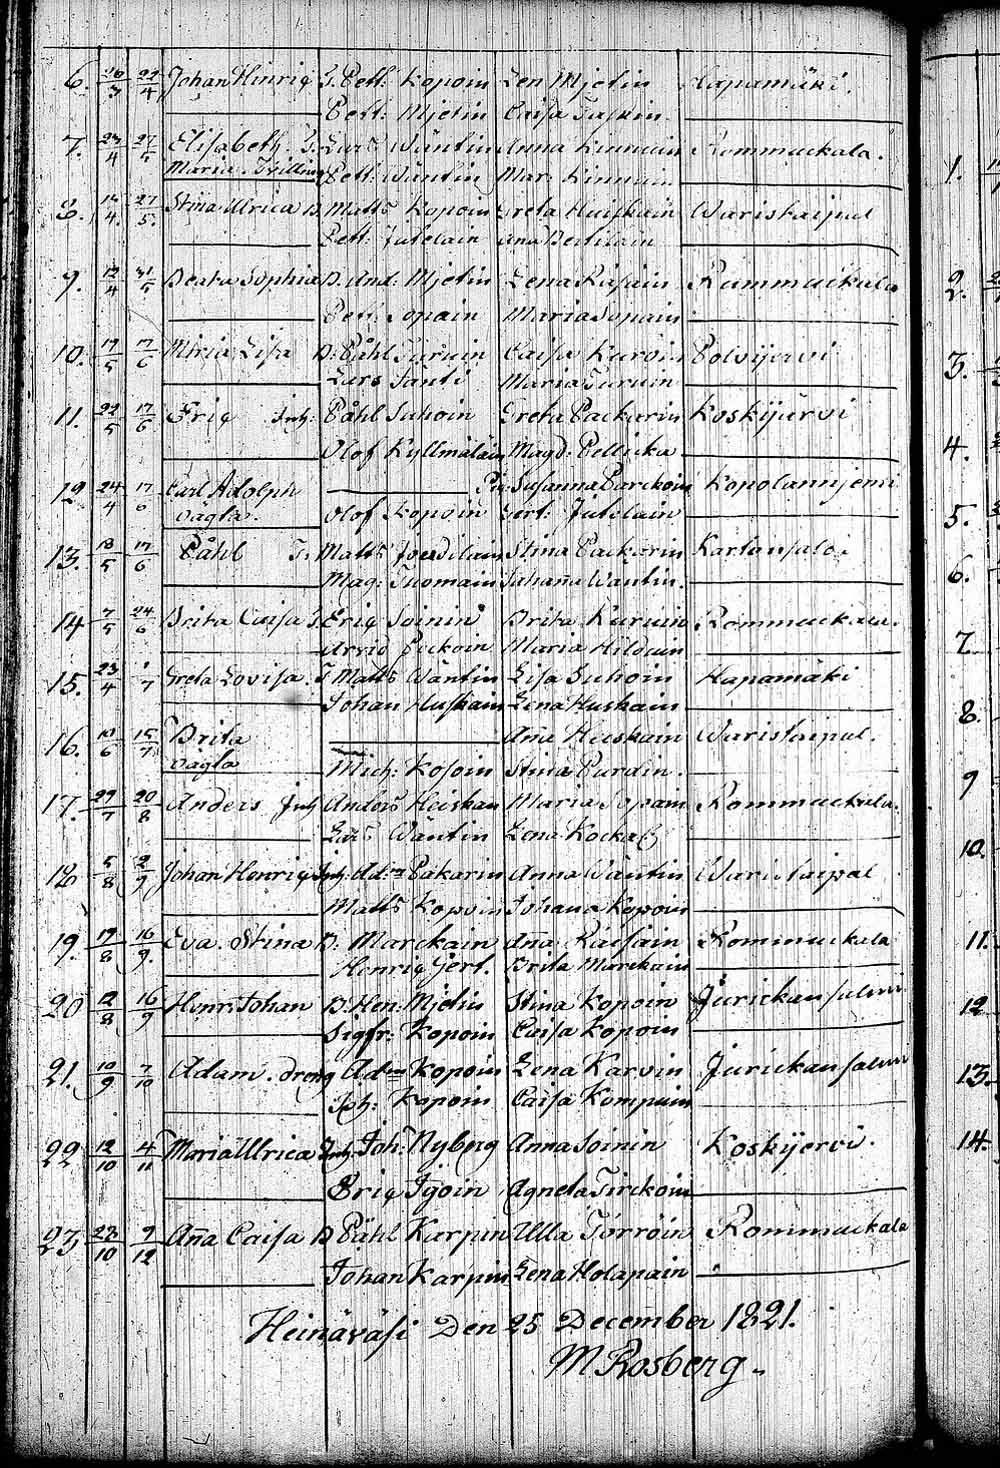 6. 26/3 22/4 Johan Hinriq T. Pett: Kopoin Len Mjetin Hapamäki.
Pett: Mjetin Caisa Taskin.
7. 23/4 27/5 Elisabeth. T. Lars Wäntin Anna Kinnuin Rommuckala.
Maria. Tvilling Pett: Wäntin Mar: Kinnuin
8. 27/5. Stina Ulrica D. Matts Kopoin Greta Huiskain Waristaipal
Pett: Jutelain Ana Bertilain
9. 12/4 31/5 Beata Sophia D. And: Mjetin Lena Räsäin Rommuckala
Pett: Sopain Maria Sopain
10. 19/5 17/6 Maria Lisa D: Påhl Turuin Caisa Kurvin Polvijervi
Lars Jänti Maria Turuin
11. 22/5 17/6 Eriq Inh: Påhl Juhoin Greta Packarin Koskijärvi
Olof Kyllmäläin Magd: Pellicka
12. 24/4 17/6 Carl Adolph Pig: Susanna Parckoin
oägta. Olof Kopoin Gert: Jutelain
13. 18/5 17/6 Påhl T. Matts Stina Packarin
Mag: Tuomain Johana Wäntin.
14 7/5 24/6 Brita Caisa T. Eriq Soinin Brita Kuruin Rommuckala.
Arvid Maria Hilduin
15. 23/4 1/7 Greta Lovisa. T Matts Wäntin Lisa Juhoin Hapamäki
Johan Huskain Lena Huskain
16. 10/6 15/7 Brita Ana Heiskain Waristaipal.
oägta Mich: Kosoin Stina Pardin.
17. 29/7 20/8 Anders Inh Anders Heiskan Maria Sopain Rommuckala.
Lars Wäntin Lena Kocka
18 5/8 2/9 Johan Henriq Inh: Ad:m Pakarin Anna Wäntin Waristaipal
Matts Kopoin Johana Kopoin
19. 19/8 16/9. Eva. Stina D. Marckain Aña Räisäin Rommuckala
Henriq Gert. Brita Marckain
20 12/8 16/9 Henr: Johan D. Hen: Mjetin Stina Kopoin Jurickansalmi
Sigfr: Kopoin Caisa Kopoin
21. 10/9 7/10 Adam. Dreng Ad:m Kopoin Lena Karvin Jurickansalmi
Joh: Kopoin Caisa Kompuin
22. 12/10 4/11 Maria Ulrica Inh: Joh: Nyberg Anna Soinin Koskijervi.
Eriq Igoin Agneta Tirckoin
23 28/10 9/12 Aña Caisa D Påhl Karpin Ulla Törröin Rommuckala
Johan Karpin Lena Holapain
Heinäväsi Den 25 December 1821.
M Rosberg
1.
2.
3.
4.
5.
6.
7.
8.
9
10.
11.
12
13.
14.